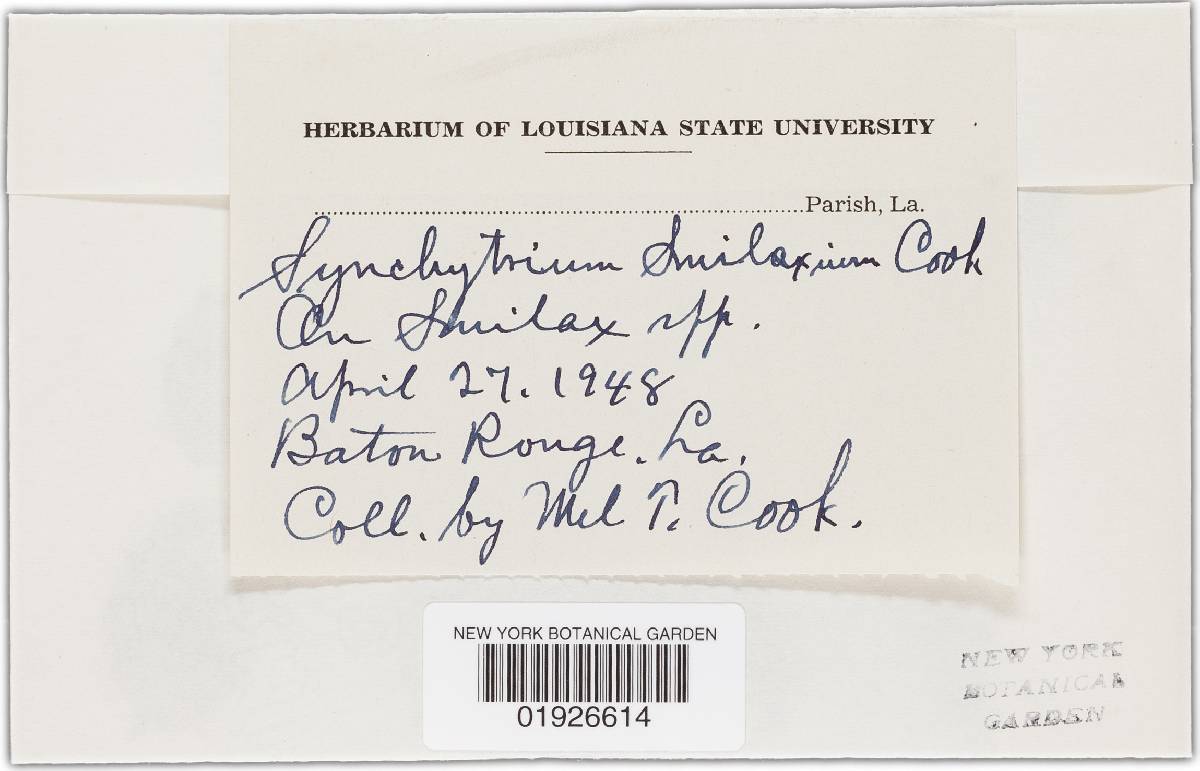 HERBARIUM OF LOUISIANA STATE UNIVERSITY
Parish, La.
Synchytrium Smilaxium Cook
On Smilax spp.
April 27. 1948
Baton Rouge. La.
Coll. by Mel T. Cook.
NEW YORK BOTANICAL GARDEN
01926614
NEW YORK
BOTANICAL
GARDEN